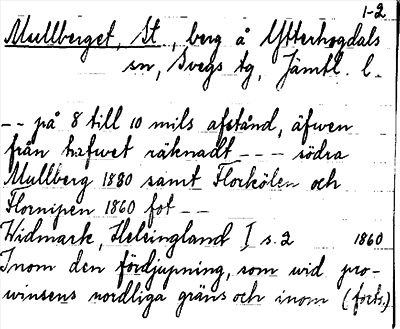 1-2
Mullberget, St, berg å Ytterhogdals
sn, Svegs tg, Jämtl. l.
-- på 8 till 10 mils afstånd, äfwen
från hafwet räknadt --- södra
Mullberg 1880 samt Florkölen och
Flornipen 1860 fot --
Widmark, Helsingland I s. 2 1860
Inom den fördjupning, som wid pro-
winsens nordliga gräns och inom (forts.)